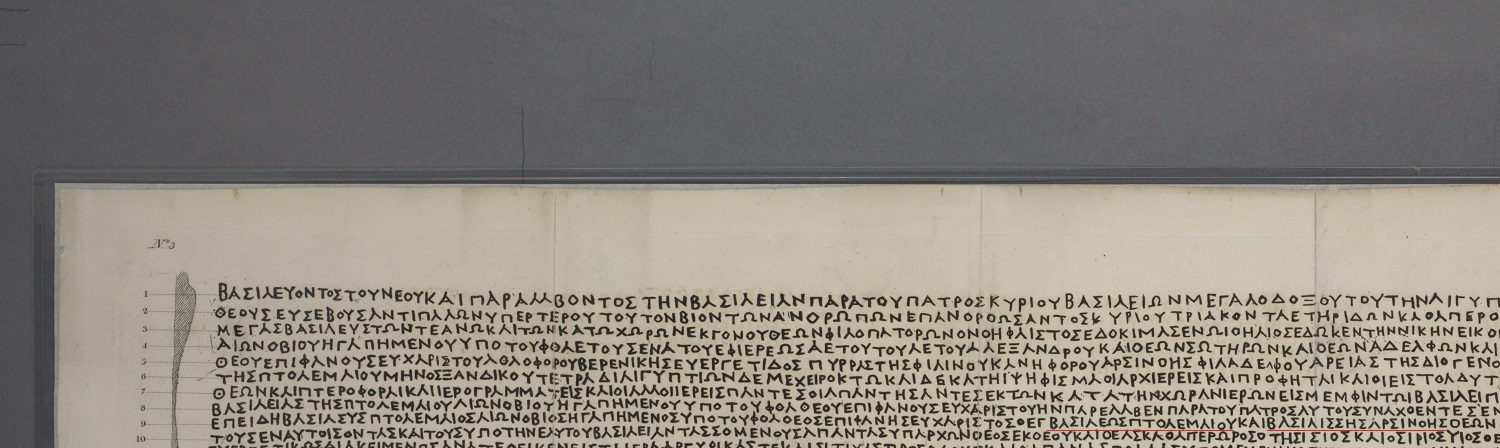 Nº 3
1 ΒΑΣΙΛΕΥΟΝΤΟΣΤΟΥΝΕΟΥΚΑΙΠΑΡΑΛΑΒΟΝΤΟΣΤΗΝΒΑΣΙΛΕΙΑΝΠΑΡΑΤΟΥΠΑΤΡΟΣΚΥΡΙΟΥΒΑΣΙΛΕΙΩΝΜΕΓΑΛΟΔΟΞΟΥΤΟΥΤΗΝΑΙΓΥΠ
2 ΘΕΟΥΣΕΥΣΕΒΟΥΣΑΝΤΙΠΑΛΩΝΥΠΕΡΤΕΡΟΥΤΟΥΤΟΝΒΙΟΝΤΩΝΑΝΘΡΩΠΩΝΕΠΑΝΟΡΘΩΣΑΝΤΟΣΚΥΡΙΟΥΤΡΙΑΚΟΝΤΑΕΤΗΡΙΔΩΝΚΑΘΑΠΕΡΟ
3 ΜΕΓΑΣΒΑΣΙΛΕΥΣΤΩΝΤΕΑΝΩΚΑΙΤΩΝΚΑΤΩΧΩΡΩΝΕΚΓΟΝΟΥΘΕΩΝΦΙΛΟΠΑΤΟΡΩΝΟΝΟΗΦΑΙΣΤΟΣΕΔΟΚΙΜΑΣΕΝΩΙΟΗΛΙΟΣΕΔΩΚΕΝΤΗΝΝΙΚΗΝΕΙΚΟ
4 ΑΙΩΝΟΒΙΟΥΗΓΑΠΗΜΕΝΟΥΥΠΟΤΟΥΦΘΑΕΤΟΥΣΕΝΑΤΟΥΕΦΙΕΡΕΩΣΑΕΤΟΥΤΟΥΑΕΤΟΥΑΛΕΞΑΝΔΡΟΥΚΑΙΘΕΩΝΣΩΤΗΡΩΝΚΑΙΘΕΩΝΑΔΕΛΦΩΝΚΑΙ
5 ΘΕΟΥΕΠΙΦΑΝΟΥΣΕΥΧΑΡΙΣΤΟΥΑΘΛΟΦΟΡΟΥΒΕΡΕΝΙΚΗΣΕΥΕΡΓΕΤΙΔΟΣΠΥΡΡΑΣΤΗΣΦΙΛΙΝΟΥΚΑΝΗΦΟΡΟΥΑΡΣΙΝΟΗΣΦΙΛΑΔΕΛΦΟΥΑΡΕΙΑΣΤΗΣΔΙΟΓΕΝΟ
6 ΤΗΣΠΤΟΛΕΜΑΙΟΥΜΗΝΟΣΞΑΝΔΙΚΟΥΤΕΤΡΑΔΙΑΙΓΥΠΤΙΩΝΔΕΜΕΧΕΙΡΟΚΤΩΚΑΙΔΕΚΑΤΗΙΨΗΦΙΣΜΑΟΙΑΡΧΙΕΡΕΙΣΚΑΙΠΡΟΦΗΤΑΙΚΑΙΟΙΕΙΣΤΟΑΔΥΤ
7 ΘΕΩΝΚΑΙΠΤΕΡΟΦΟΡΑΙΚΑΙΙΕΡΟΓΡΑΜΜΑΤΕΙΣΚΑΙΟΙΑΛΛΟΙΙΕΡΕΙΣΠΑΝΤΕΣΟΙΑΠΑΝΤΗΣΑΝΤΕΣΕΚΤΩΝΚΑΤΑΤΗΝΧΩΡΑΝΙΕΡΩΝΕΙΣΜΕΜΦΙΝΤΩΙΒΑΣΙΛΕΙΠ
8 ΒΑΣΙΛΕΙΑΣΤΗΣΠΤΟΛΕΜΑΙΟΥΑΙΩΝΟΒΙΟΥΗΓΑΠΗΜΕΝΟΥΥΠΟΤΟΥΦΘΑΘΕΟΥΕΠΙΦΑΝΟΥΣΕΥΧΑΡΙΣΤΟΥΗΝΠΑΡΕΛΑΒΕΝΠΑΡΑΤΟΥΠΑΤΡΟΣΑΥΤΟΥΣΥΝΑΧΘΕΝΤΕΣΕΝ
9 ΕΠΕΙΔΗΒΑΣΙΛΕΥΣΠΤΟΛΕΜΑΙΟΣΑΙΩΝΟΒΙΟΣΗΓΑΠΗΜΕΝΟΣΥΠΟΤΟΥΦΘΑΘΕΟΣΕΠΙΦΑΝΗΣΕΥΧΑΡΙΣΤΟΣΟΕΓΒΑΣΙΛΕΩΣΠΤΟΛΕΜΑΙΟΥΚΑΙΒΑΣΙΛΙΣΣΗΣΑΡΣΙΝΟΗΣΘΕΩΝ
10